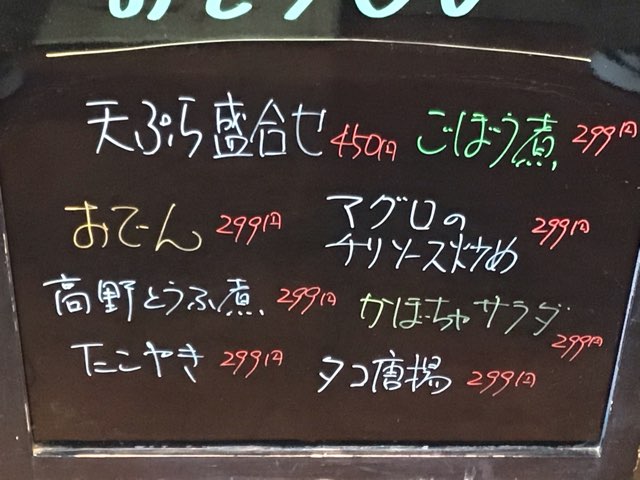 天ぷら盛合せ 450円
ごぼう煮 299円
おでん 299円
マグロの
チリソース炒め 299円
高野とうふ煮 299円
かぼちゃサラダ
299円
たこやき 299円
タコ唐揚 299円